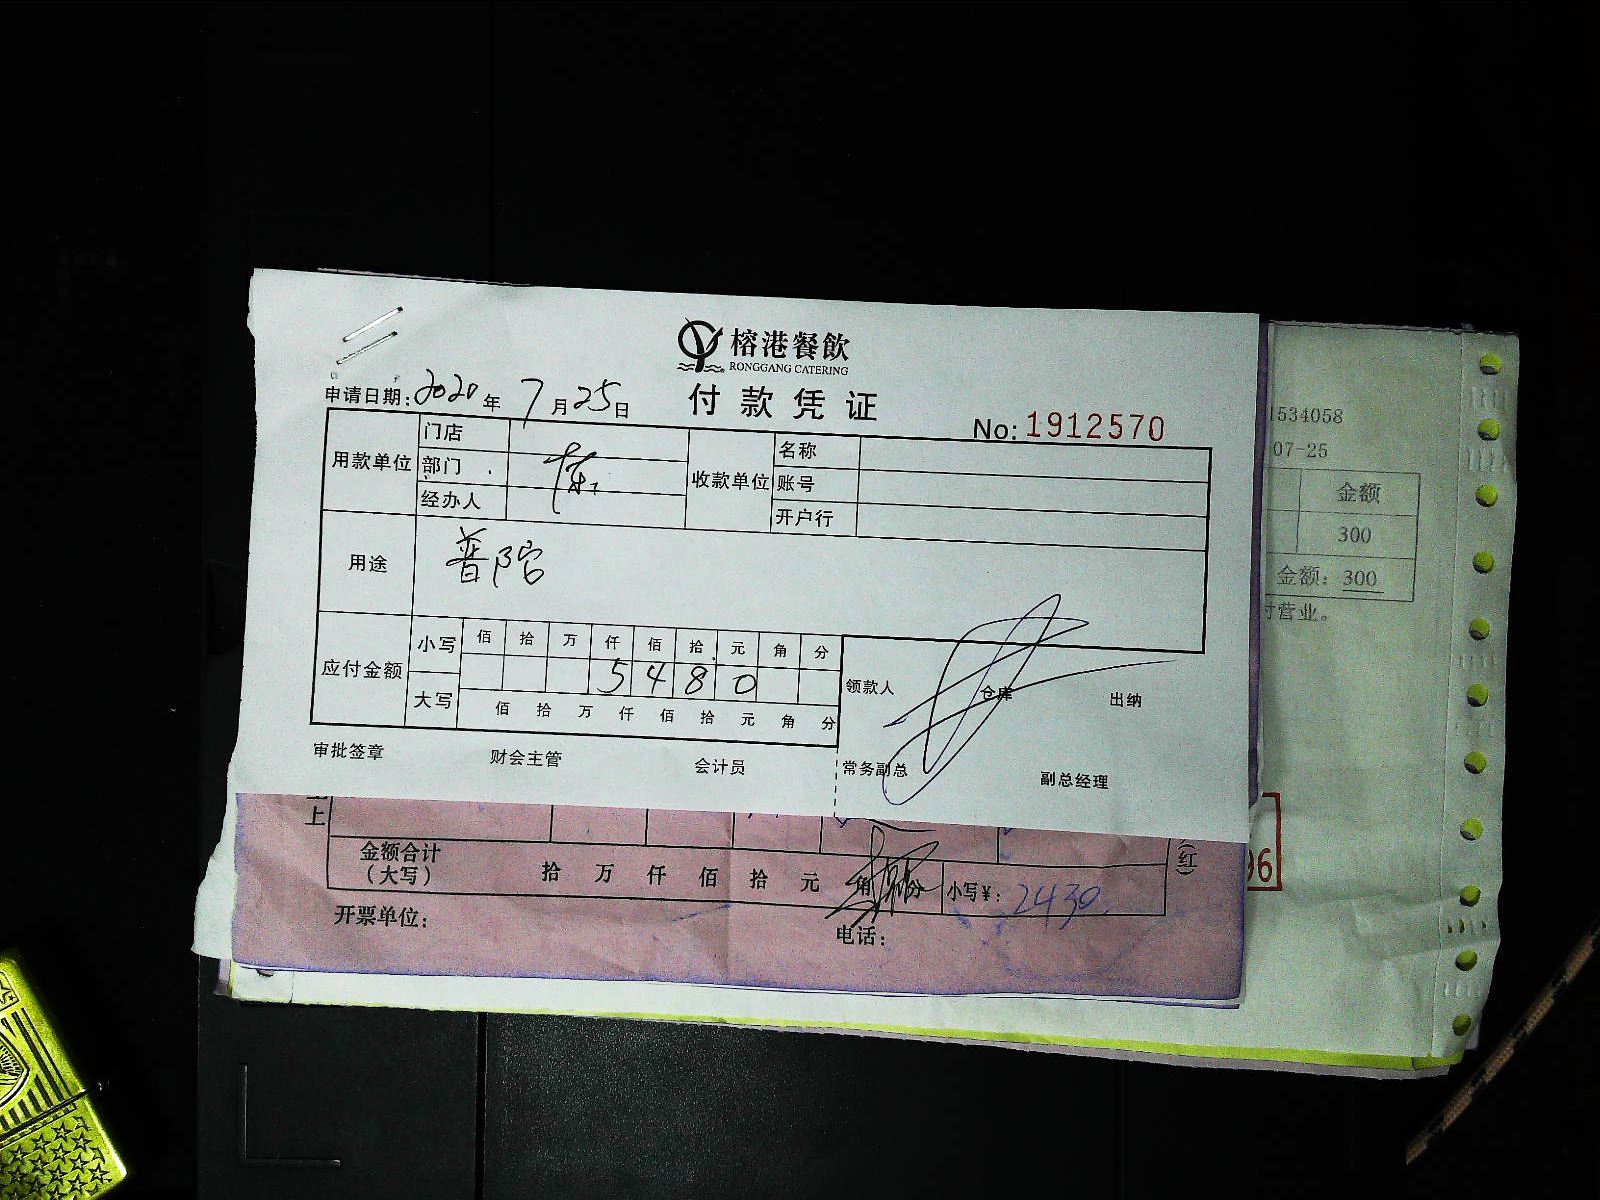 榕港餐飲
RONGGANG CATERING
付款凭证
申请日期:2020年7月25日
No:1912570
用款单位 门店 收款单位 名称
部门 账号
经办人 开户行
用途 普陀
应付金额 小写 佰 拾 万 仟 佰 拾 元 角 分
5 4 8 0
大写 佰 拾 万 仟 佰 拾 元 角 分
领款人 仓库 出纳
审批签章 财会主管 会计员 常务副总 副总经理
1534058
07-25
金额
300
金额：300
付营业。
上
(红)
96
金额合计
(大写) 拾 万 仟 佰 拾 元 角 分 小写¥：2430
开票单位：
电话：